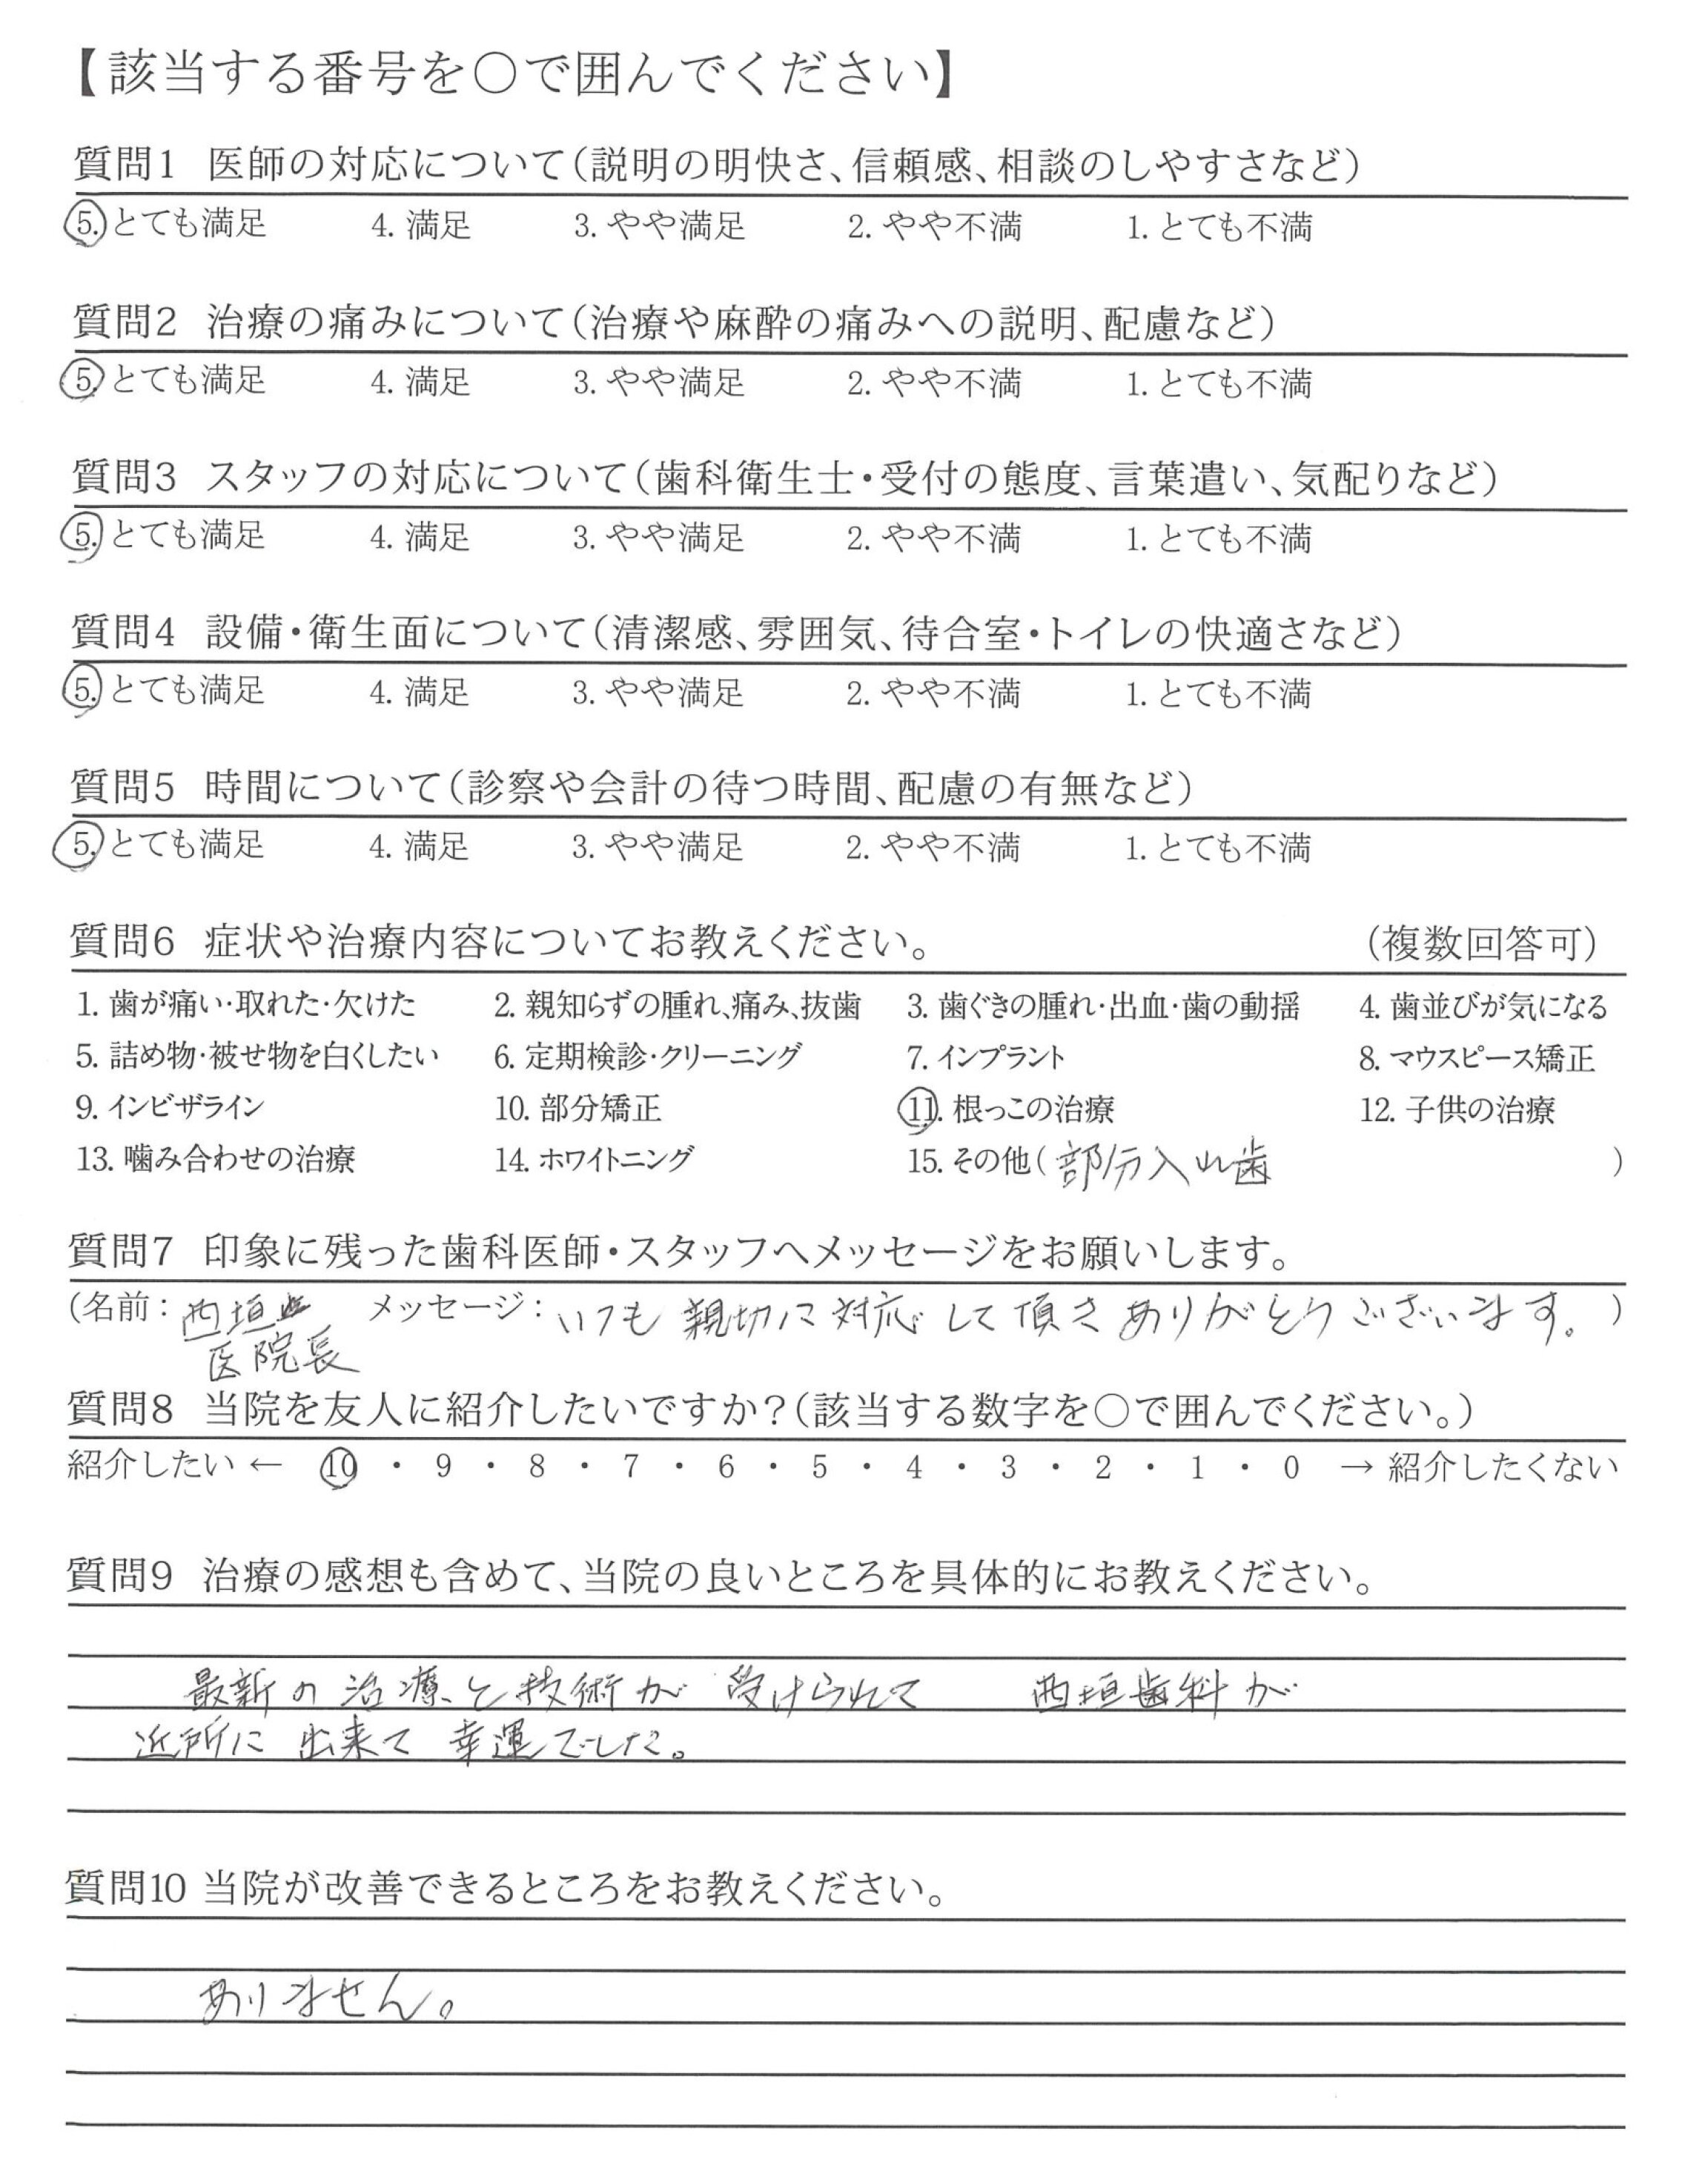 【該当する番号を○で囲んでください】
質問1 医師の対応について(説明の明快さ、信頼感、相談のしやすさなど)
5. とても満足 4. 満足 3. やや満足 2. やや不満 1. とても不満
質問2 治療の痛みについて(治療や麻酔の痛みへの説明、配慮など)
5. とても満足 4. 満足 3. やや満足 2. やや不満 1. とても不満
質問3 スタッフの対応について(歯科衛生士・受付の態度、言葉遣い、気配りなど)
5. とても満足 4. 満足 3. やや満足 2. やや不満 1. とても不満
質問4 設備・衛生面について(清潔感、雰囲気、待合室・トイレの快適さなど)
5. とても満足 4. 満足 3. やや満足 2. やや不満 1. とても不満
質問5 時間について(診察や会計の待つ時間、配慮の有無など)
5. とても満足 4. 満足 3. やや満足 2. やや不満 1. とても不満
質問6 症状や治療内容についてお教えください。 (複数回答可)
1. 歯が痛い・取れた・欠けた 2. 親知らずの腫れ、痛み、抜歯 3. 歯ぐきの腫れ・出血・歯の動揺 4. 歯並びが気になる
5. 詰め物・被せ物を白くしたい 6. 定期検診・クリーニング 7. インプラント 8. マウスピース矯正
9. インビザライン 10. 部分矯正 11. 根っこの治療 12. 子供の治療
13. 噛み合わせの治療 14. ホワイトニング 15. その他(部分入れ歯)
質問7 印象に残った歯科医師・スタッフへメッセージをお願いします。
(名前:西垣 メッセージ:いつも親切に対応して頂きありがとうございます。)
医院長
質問8 当院を友人に紹介したいですか?(該当する数字を○で囲んでください。)
紹介したい ← 10 ・ 9 ・ 8 ・ 7 ・ 6 ・ 5 ・ 4 ・ 3 ・ 2 ・ 1 ・ 0 → 紹介したくない
質問9 治療の感想も含めて、当院の良いところを具体的にお教えください。
最新の治療と技術が受けられて 西垣歯科が
近所に出来て幸運でした。
質問10 当院が改善できるところをお教えください。
ありません。